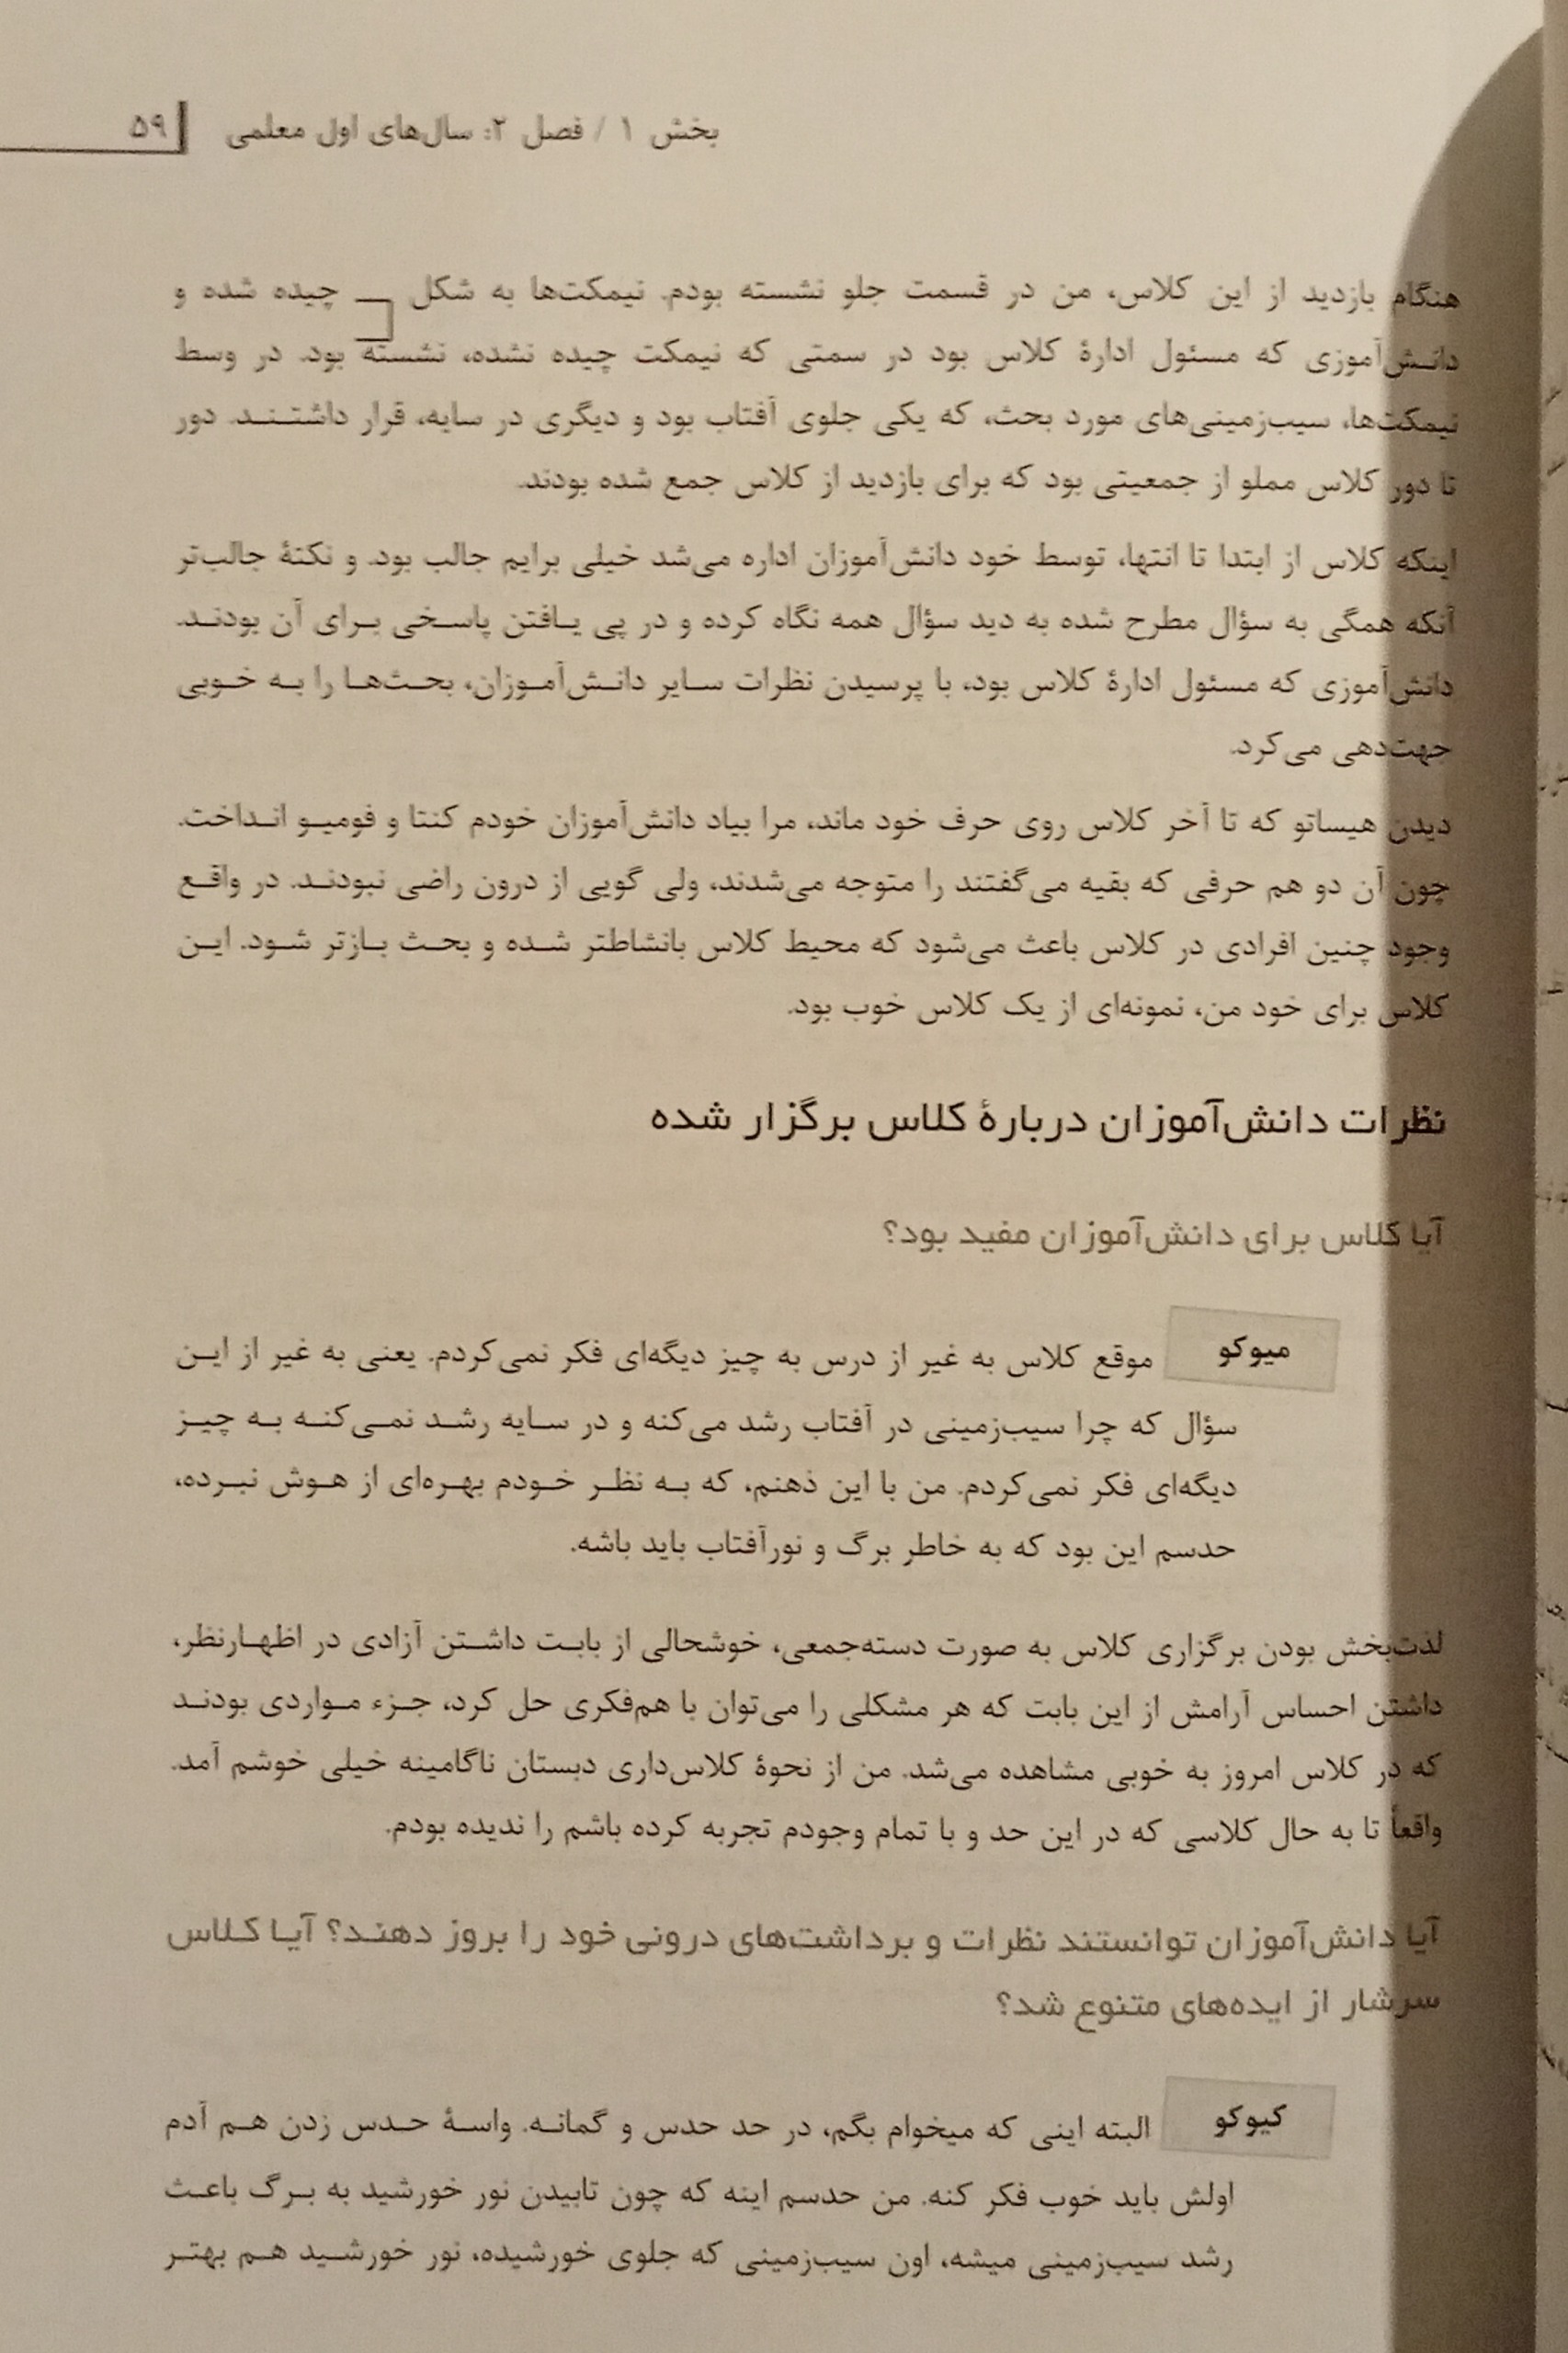 بخش ۱ / فصل ۲: سال‌های اول معلمی ۵۹
هنگام بازدید از این کلاس، من در قسمت جلو نشسته بودم. نیمکت‌ها به شکل چیده شده و
دانش‌آموزی که مسئول ادارهٔ کلاس بود در سمتی که نیمکت چیده نشده، نشسته بود. در وسط
نیمکت‌ها، سیب‌زمینی‌های مورد بحث، که یکی جلوی آفتاب بود و دیگری در سایه، قرار داشتند. دور
تا دور کلاس مملو از جمعیتی بود که برای بازدید از کلاس جمع شده بودند.
اینکه کلاس از ابتدا تا انتها، توسط خود دانش‌آموزان اداره می‌شد خیلی برایم جالب بود. و نکتهٔ جالب‌تر
آنکه همگی به سؤال مطرح شده به دید سؤال همه نگاه کرده و در پی یافتن پاسخی برای آن بودند.
دانش‌آموزی که مسئول ادارهٔ کلاس بود، با پرسیدن نظرات سایر دانش‌آموزان، بحث‌ها را به خوبی
جهت‌دهی می‌کرد.
دیدن هیساتو که تا آخر کلاس روی حرف خود ماند، مرا بیاد دانش‌آموزان خودم کنتا و فومیو انداخت.
چون آن دو هم حرفی که بقیه می‌گفتند را متوجه می‌شدند، ولی گویی از درون راضی نبودند. در واقع
وجود چنین افرادی در کلاس باعث می‌شود که محیط کلاس بانشاطتر شده و بحث بازتر شود. این
کلاس برای خود من، نمونه‌ای از یک کلاس خوب بود.
نظرات دانش‌آموزان دربارهٔ کلاس برگزار شده
آیا کلاس برای دانش‌آموزان مفید بود؟
میوکو موقع کلاس به غیر از درس به چیز دیگه‌ای فکر نمی‌کردم. یعنی به غیر از این
سؤال که چرا سیب‌زمینی در آفتاب رشد می‌کنه و در سایه رشد نمی‌کنه به چیز
دیگه‌ای فکر نمی‌کردم. من با این ذهنم، که به نظر خودم بهره‌ای از هوش نبرده،
حدسم این بود که به خاطر برگ و نورآفتاب باید باشه.
لذت‌بخش بودن برگزاری کلاس به صورت دسته‌جمعی، خوشحالی از بابت داشتن آزادی در اظهارنظر،
داشتن احساس آرامش از این بابت که هر مشکلی را می‌توان با هم‌فکری حل کرد، جزء مواردی بودند
که در کلاس امروز به خوبی مشاهده می‌شد. من از نحوهٔ کلاس‌داری دبستان ناگامینه خیلی خوشم آمد.
واقعاً تا به حال کلاسی که در این حد و با تمام وجودم تجربه کرده باشم را ندیده بودم.
آیا دانش‌آموزان توانستند نظرات و برداشت‌های درونی خود را بروز دهند؟ آیا کلاس
سرشار از ایده‌های متنوع شد؟
کیوکو البته اینی که میخوام بگم، در حد حدس و گمانه. واسهٔ حدس زدن هم آدم
اولش باید خوب فکر کنه. من حدسم اینه که چون تابیدن نور خورشید به برگ باعث
رشد سیب‌زمینی میشه، اون سیب‌زمینی که جلوی خورشیده، نور خورشید هم بهتر